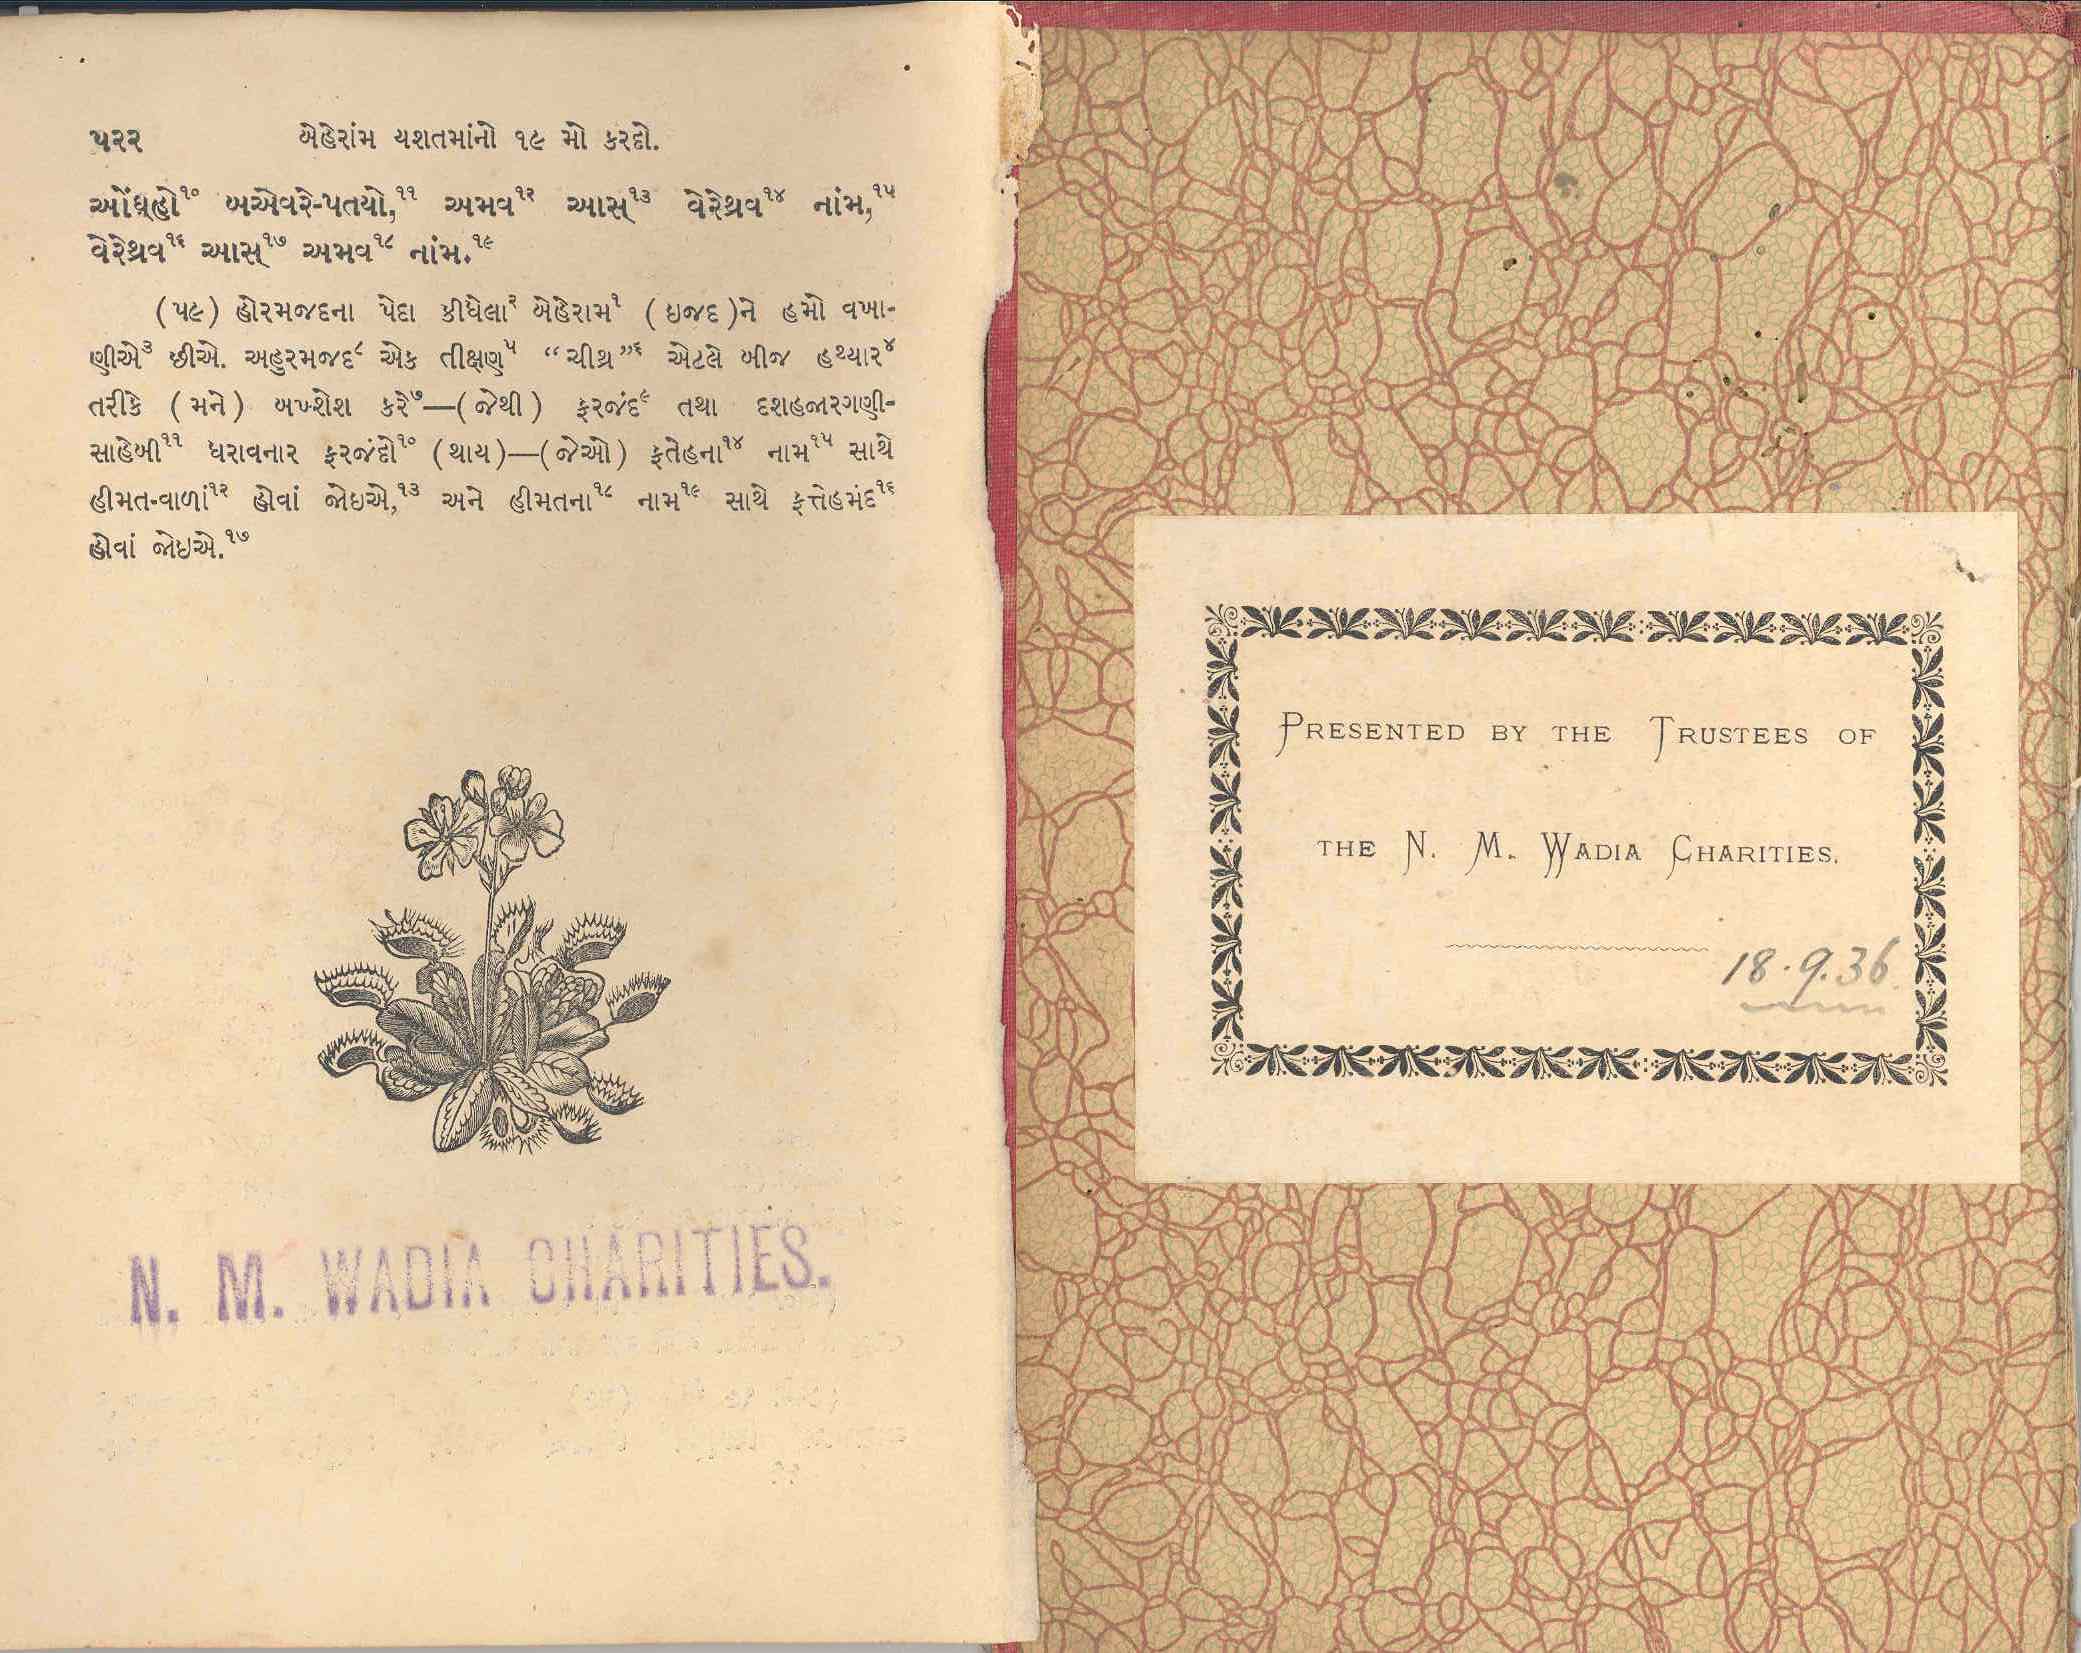 ૫૨૨ બેહેરાંમ યશતમાંનો ૧૯ મો કરદો.
ઓંઘ્હો૧૦ બએવરે-પતયો,૧૧ અમવ૧૨ આસ્૧૩ વેરેથ્રવ૧૪ નાંમ,૧૫
વેરેથ્રવ૧૬ આસ્૧૭ અમવ૧૮ નાંમ.૧૯
(૫૯) હોરમજદના પેદા કીધેલા૨ બેહેરામ૧ (ઇજદ)ને હમો વખા-
ણીએ૩ છીએ. અહુરમજદ૮ એક તીક્ષણ૫ “ચીથ્ર”૬ એટલે બીજ હથ્યાર૪
તરીકે (મને) બખ્શેશ કરે૭—(જેથી) ફરજંદ૯ તથા દશહજારગણી-
સાહેબી૧૧ ધરાવનાર ફરજંદો૧૦ (થાય)—(જેઓ) ફતેહના૧૪ નામ૧૫ સાથે
હીમત-વાળાં૧૨ હોવાં જોઇએ,૧૩ અને હીમતના૧૮ નામ૧૯ સાથે ફત્તેહમંદ૧૬
હોવાં જોઇએ.૧૭
N. M. WADIA CHARITIES.
PRESENTED BY THE TRUSTEES OF
THE N. M. WADIA CHARITIES.
18.9.36